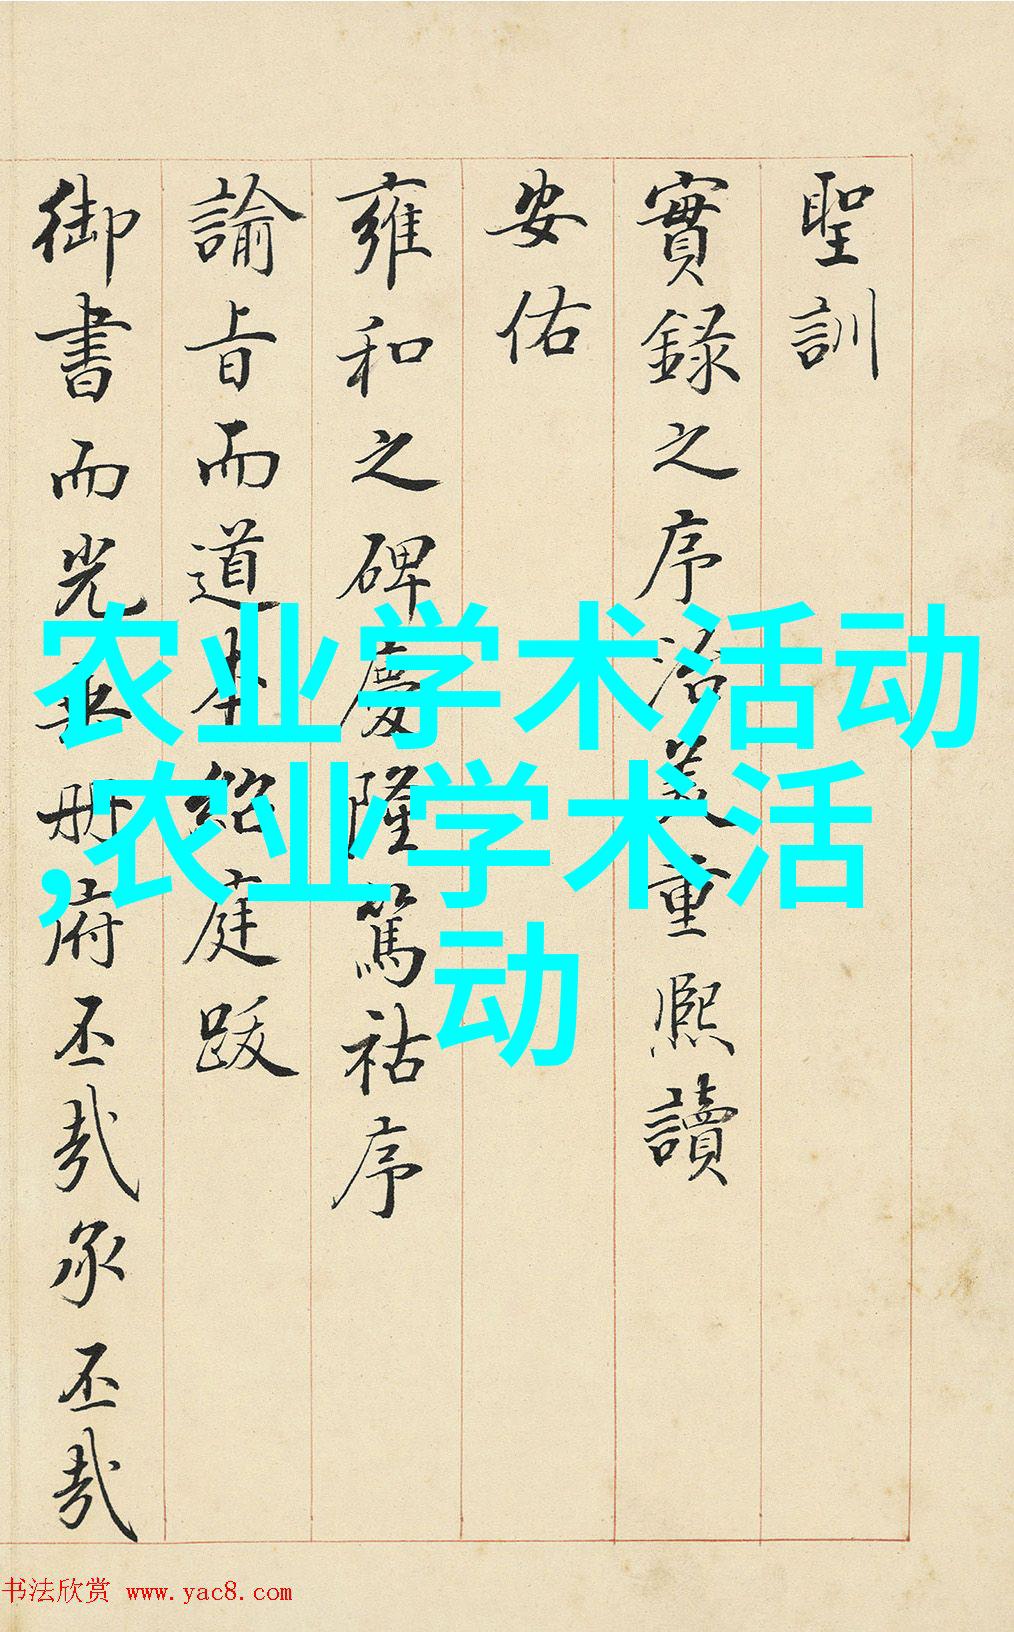 聖訓
實録之序洽美重熈讀
安佑
雍和之碑慶隆篤祜序
諭旨而道本紹庭跋
御書而光垂册府丕哉承丕哉
农业学术活动
,农业学术活
动
书法欣赏 www.yac8.com